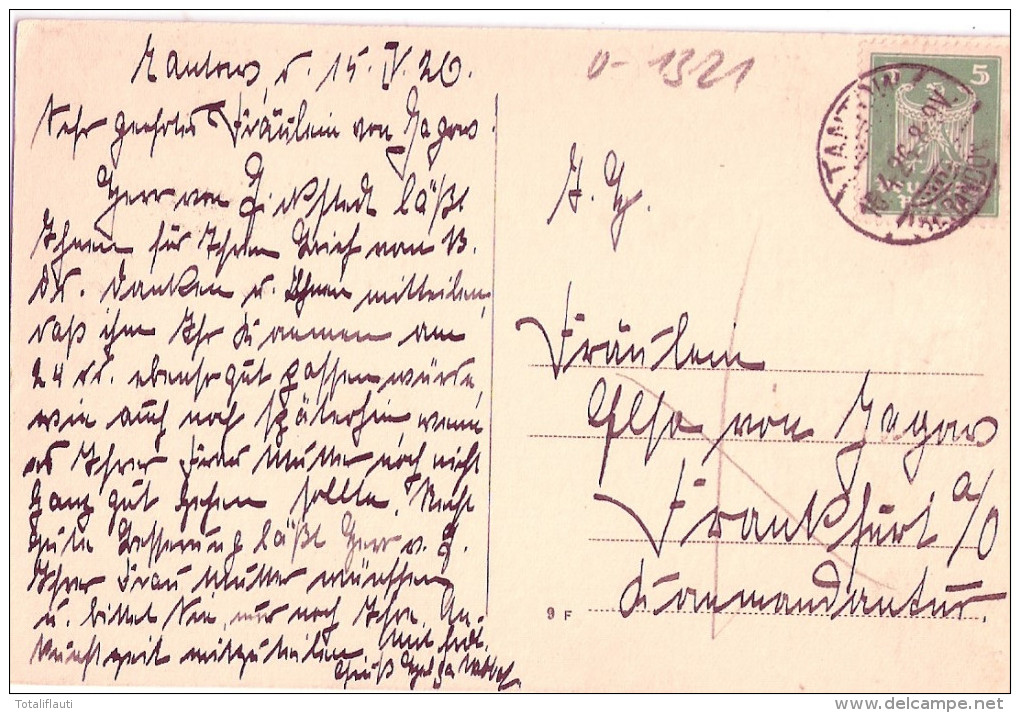 Tantow d. 15. IV. 26.
Sehr geehrtes Fräulein von Jagow!
Herr von Eickstedt läßt
Ihnen für Ihren Brief vom 13.
ds. danken u. Ihnen mitteilen,
daß ihm Ihr Kommen am
24. ds. ebenso gut passen würde,
wie auch noch späterhin, wenn
es Ihrer Frau Mutter noch nicht
ganz gut gehen sollte. Recht
gute Besserung läßt Herr v. E.
Ihrer Frau Mutter wünschen
u. bittet Sie, nur noch Ihre An-
kunftszeit mitzuteilen. Mit frdl.
Gruß Helga
0-1321
5
TANTOW
(BZ. RANDOW)
Fräulein
Elsa von Jagow
Frankfurt a/O
Kommandantur.
9 F
Totaliflauti
www.delcampe.net